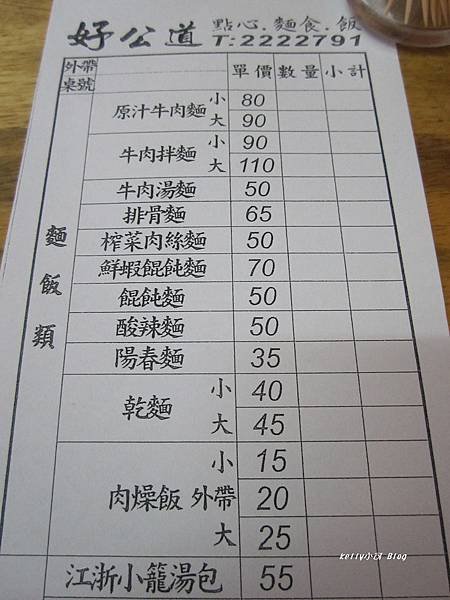 好公道 點心.麵食.飯
T:2222791
外帶
桌號 單價 數量 小計
麵飯類
原汁牛肉麵 小 80
大 90
牛肉拌麵 小 90
大 110
牛肉湯麵 50
排骨麵 65
榨菜肉絲麵 50
鮮蝦餛飩麵 70
餛飩麵 50
酸辣麵 50
陽春麵 35
乾麵 小 40
大 45
肉燥飯 小 15
外帶 20
大 25
江浙小籠湯包 55